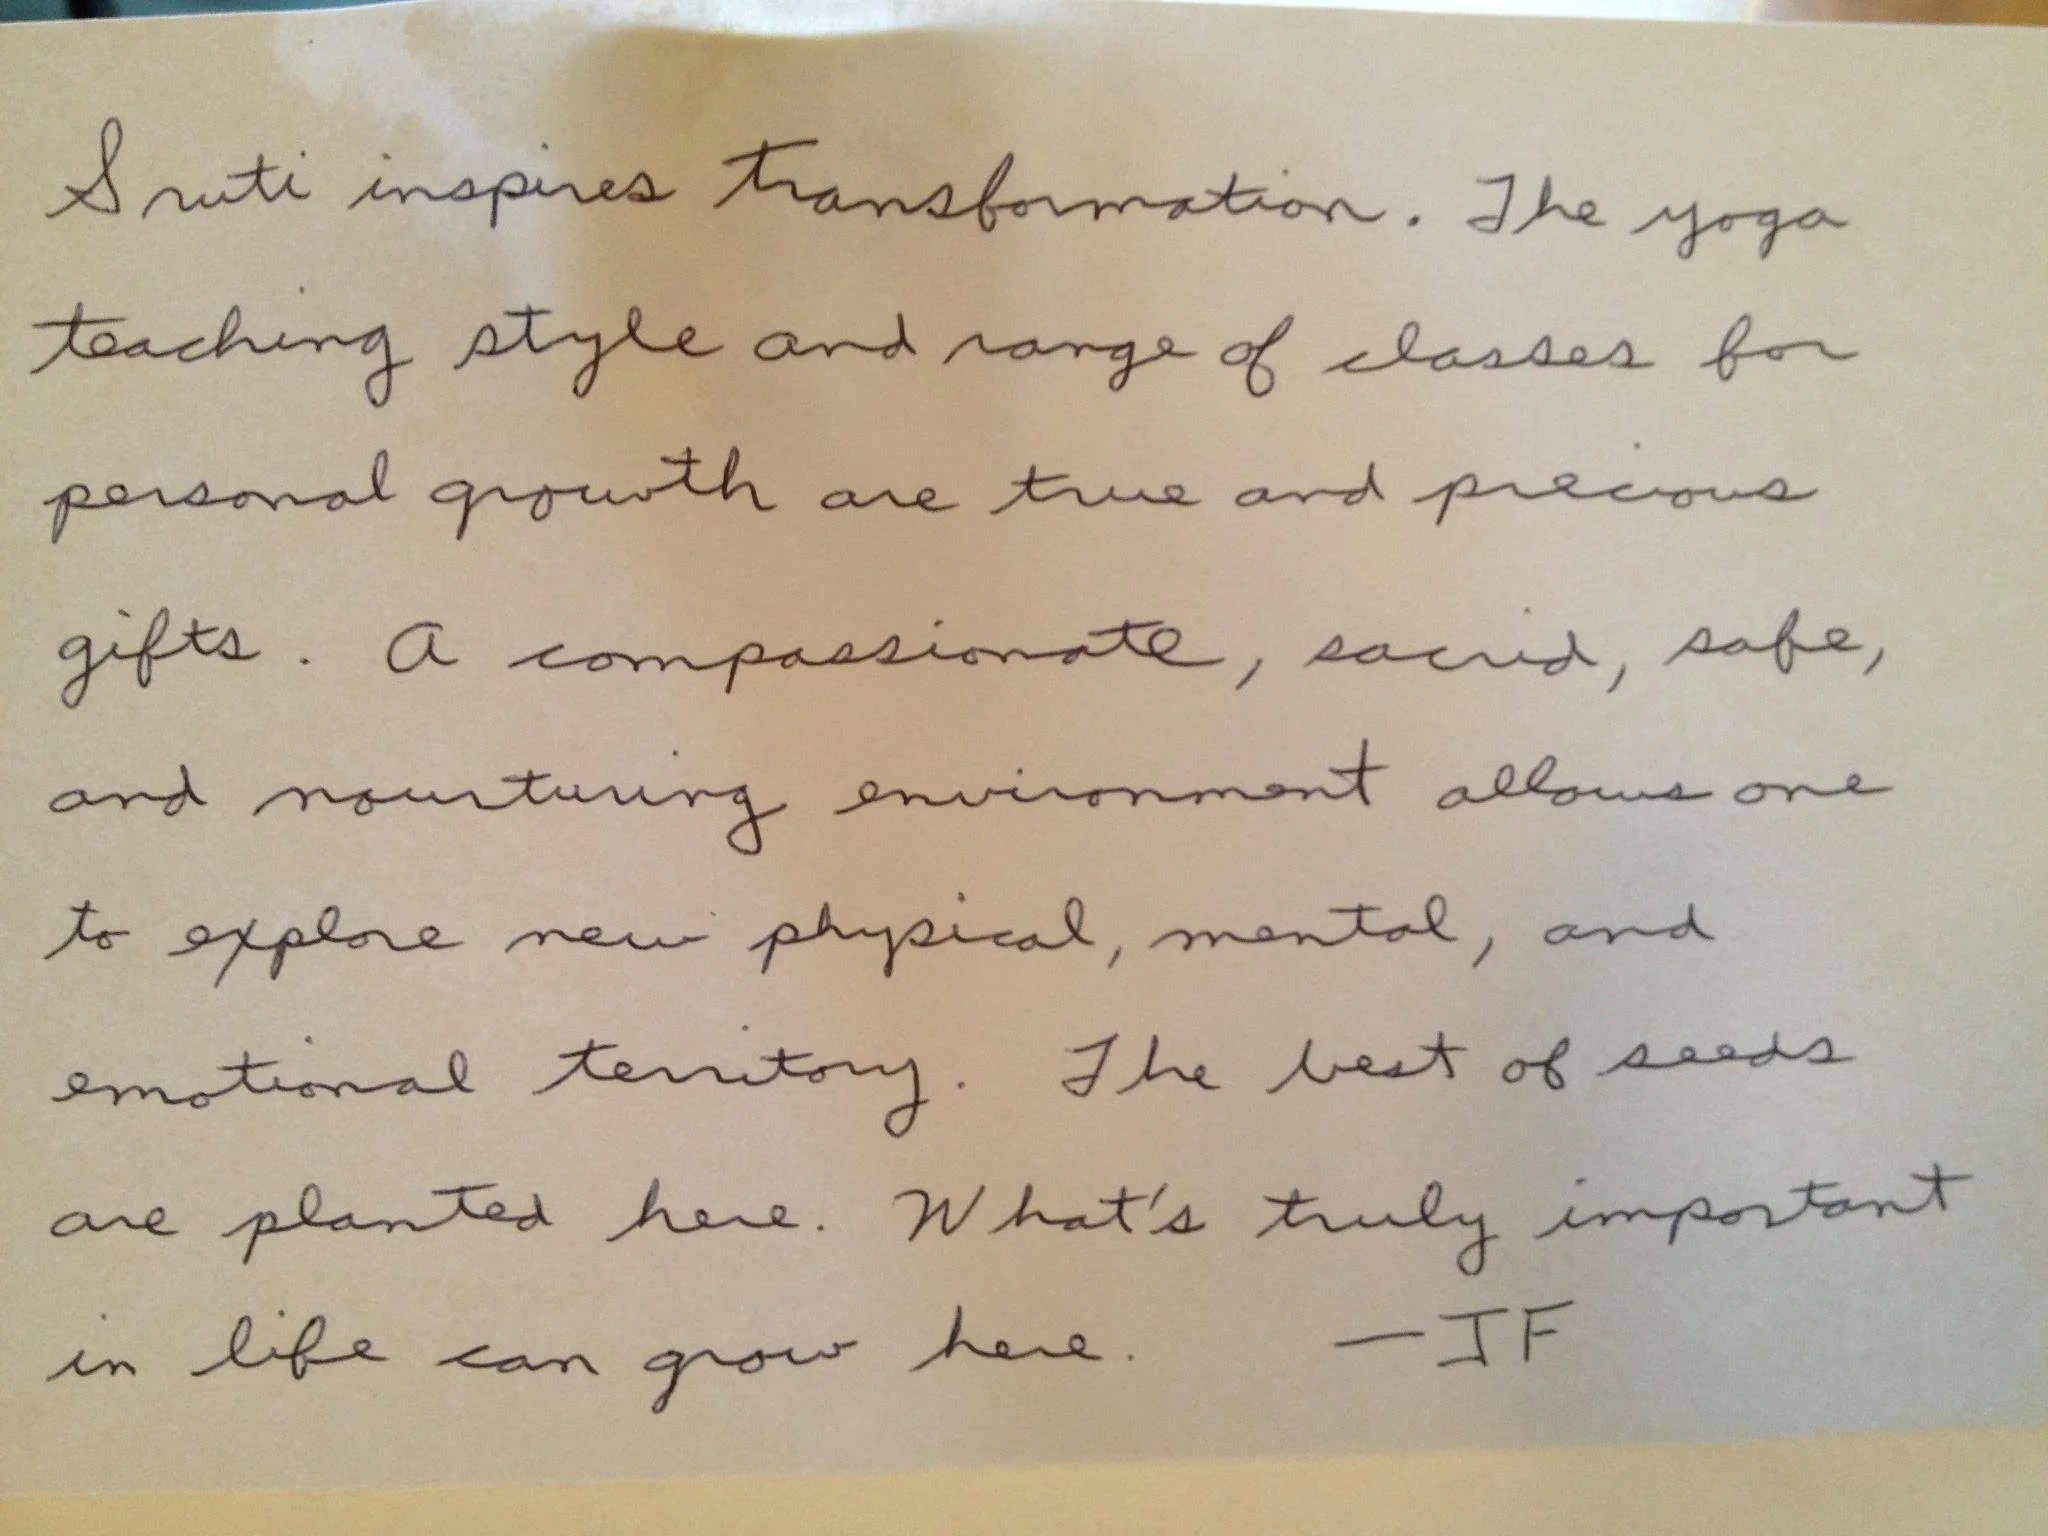 Sruti inspires transformation. The yoga
teaching style and range of classes for
personal growth are true and precious
gifts. A compassionate, sacrid, safe,
and nourturing environment allows one
to explore new physical, mental, and
emotional territory. The best of seeds
are planted here. What's truly important
in life can grow here. —JF